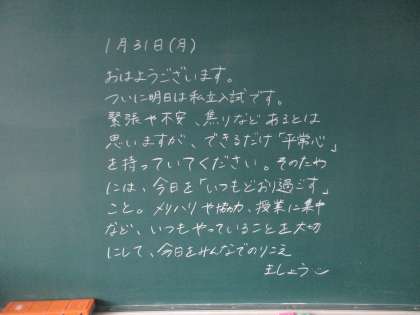 1月31日(月)
おはようございます。
ついに明日は私立入試です。
緊張や不安、焦りなどあるとは
思いますが、できるだけ「平常心」
を持っていてください。そのため
には、今日を「いつもどおり過ごす」
こと。メリハリや協力、授業に集中
など、いつもやっていることを大切
にして、今日をみんなでのりこえ
ましょう